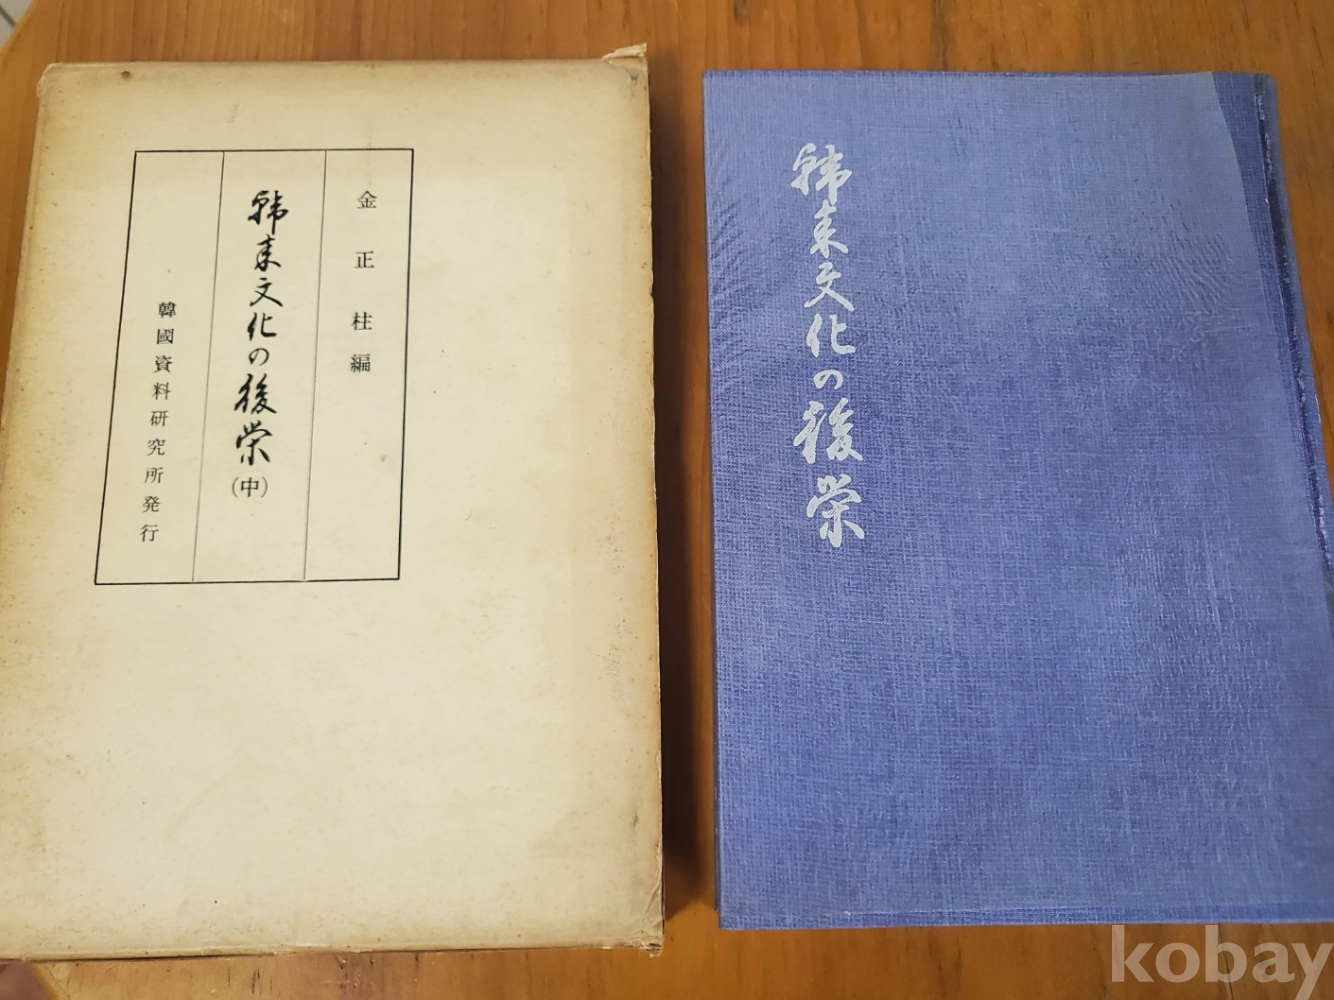 金正柱編
韓来文化の後栄
(中)
韓國資料研究所発行
韓来文化の後栄
kobay